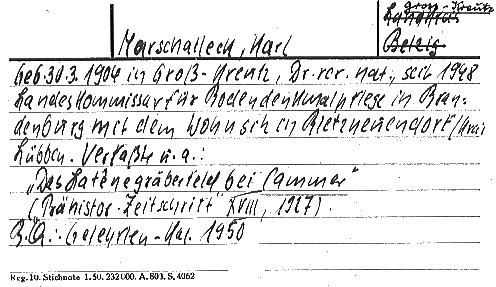 Groß-Kreutz
Landkreis
Marschalleck, Karl
Belzig
Geb. 30.3.1904 in Groß-Kreutz, Dr. rer. nat., seit 1948
Landeskommissar für Bodendenkmalpflege in Bran-
denburg mit dem Wohnsitz in Pretzneuendorf/Kreis
Lübben. Verfaßte u.a.:
"Das Latènegräberfeld bei Cammer"
("Prähistor. Zeitschrift" XVIII, 1927).
B.Q.: Gelehrten-Kal. 1950
Reg. 10. Stichnote 1. 50. 232000. A. 803. S. 4062